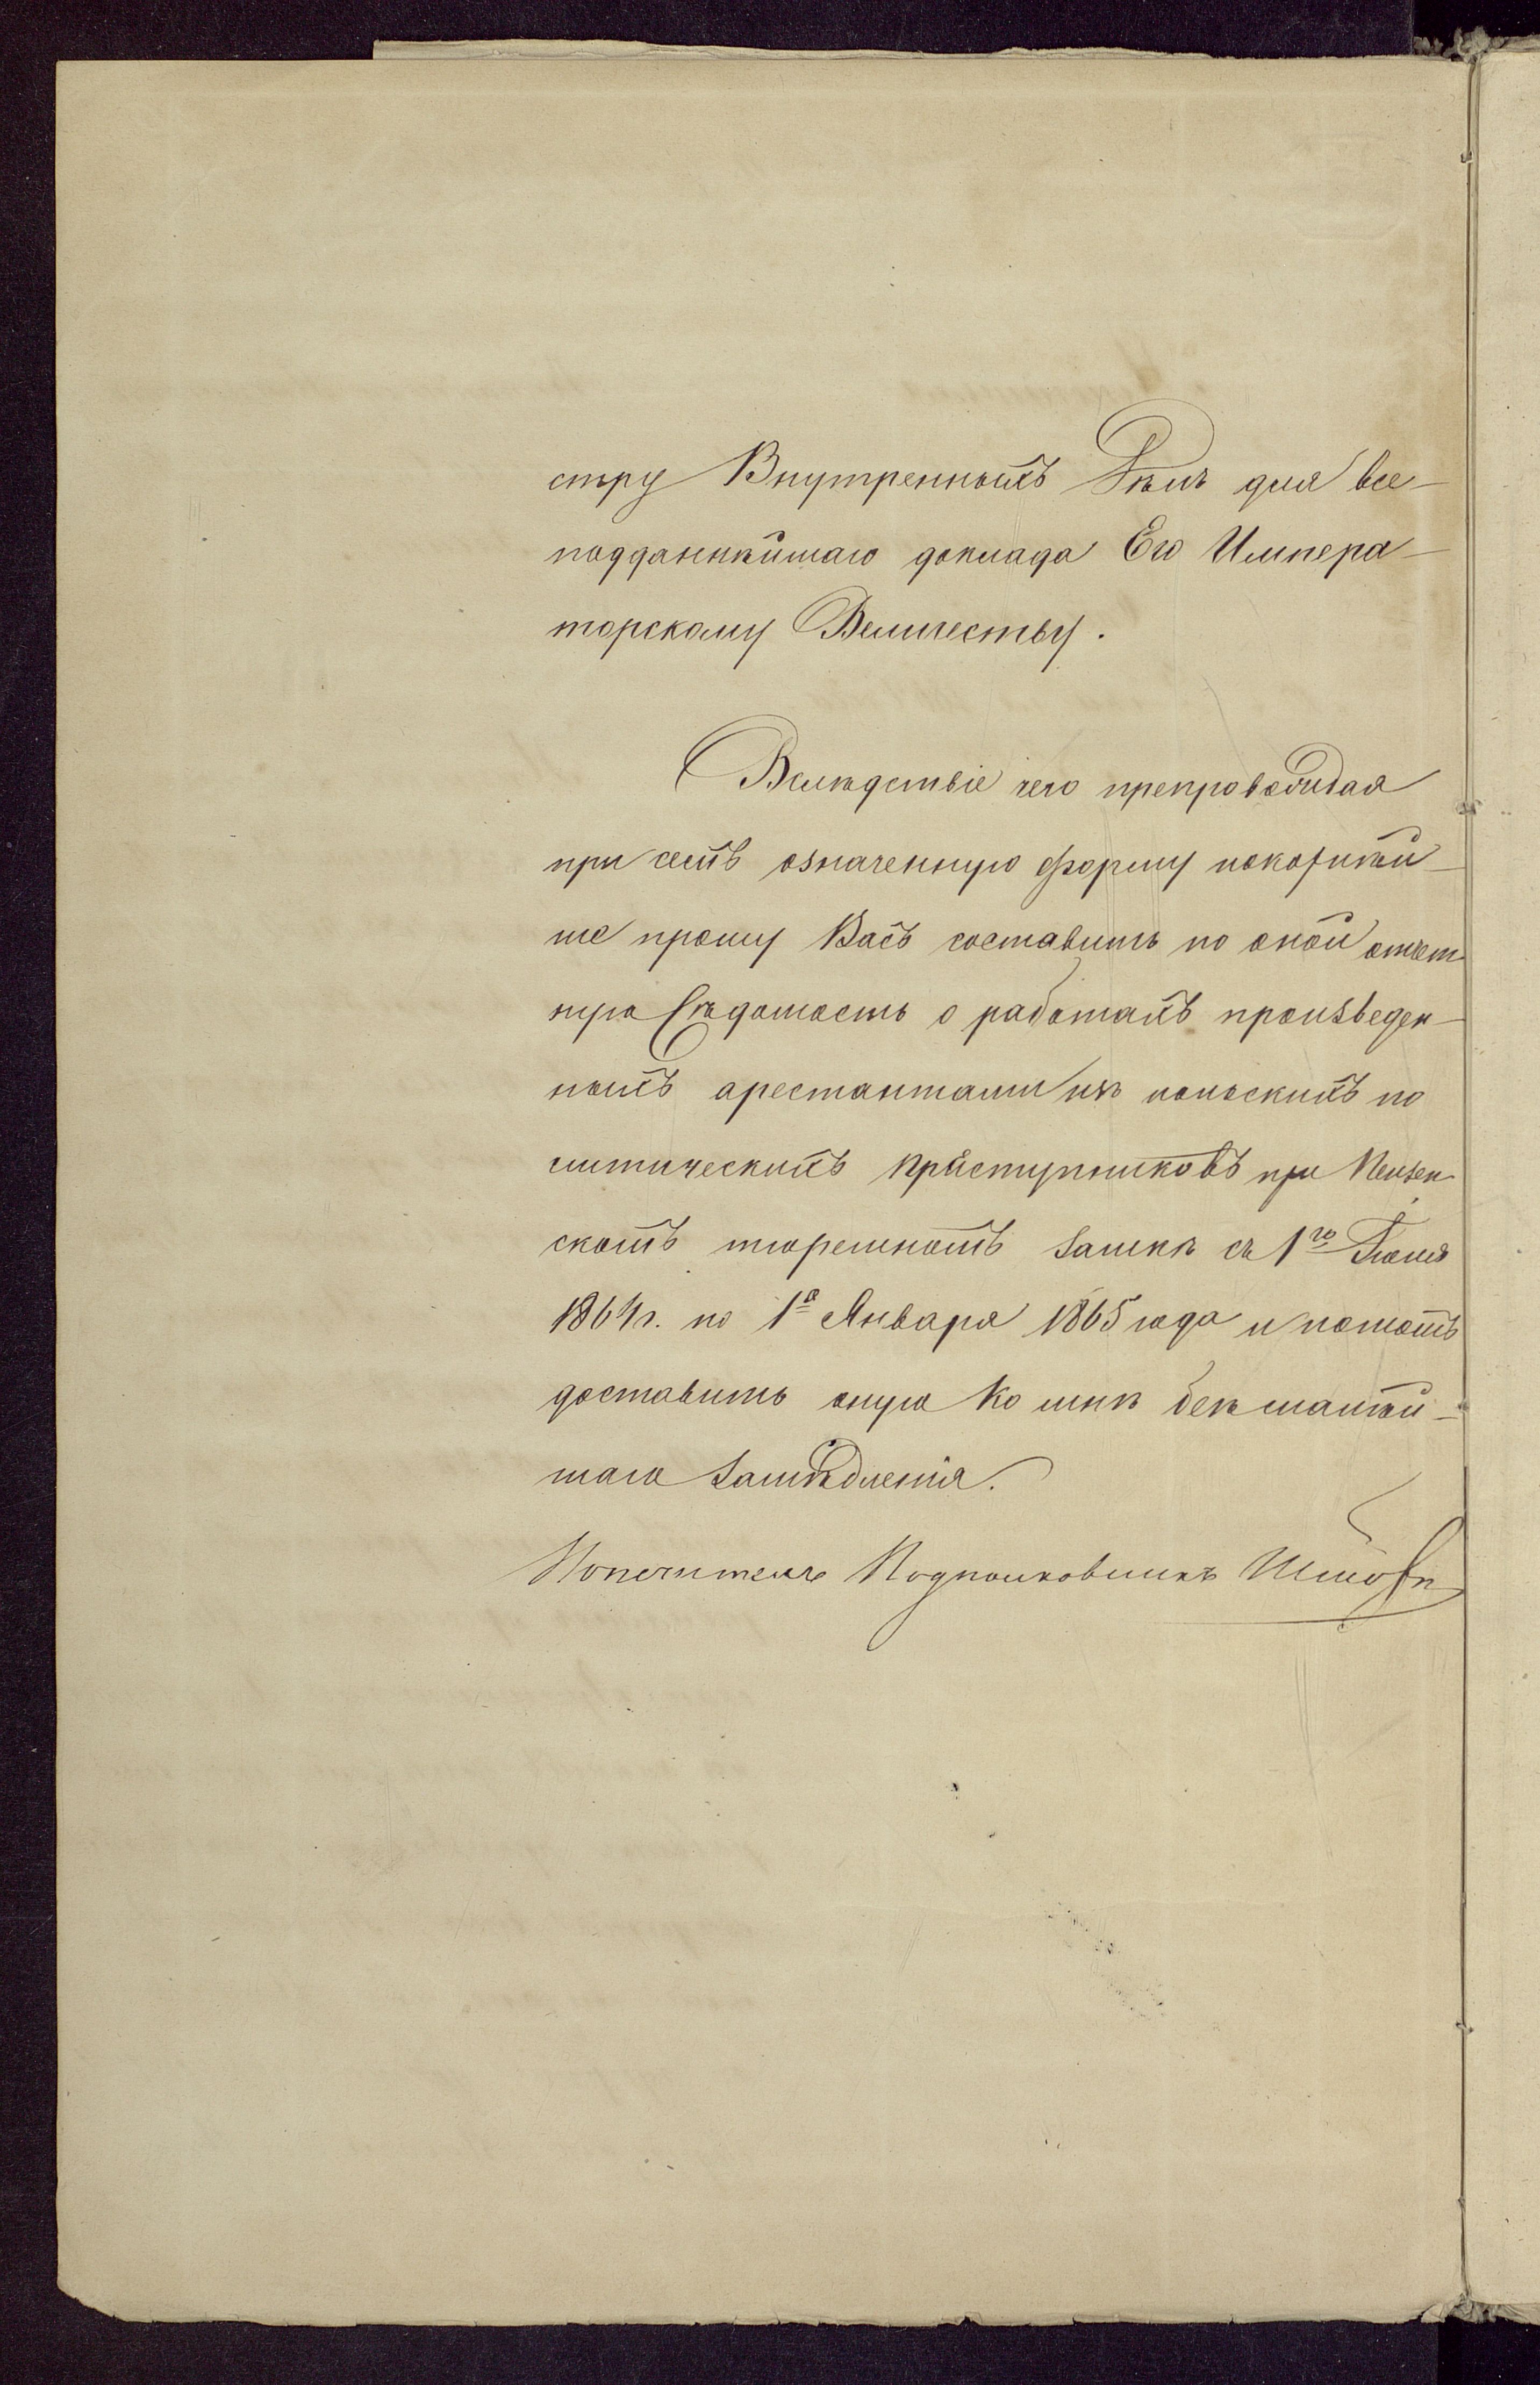 стру Внутреннихъ Дѣлъ для все-
подданнѣйшаго доклада Его Импера-
торскому Величеству.
Вслѣдствіе чего препровождая
при семъ означенную форму покорнѣй-
ше прошу Васъ составить по оной отчет
ную вѣдомость о работахъ произведен-
ныхъ арестантами изъ польскихъ по
литическихъ приступниковъ при Пензен
скомъ тюремномъ замкѣ съ 1го Іюля
1864г. по 1е Января 1865 года и потомъ
доставить оную ко мнѣ безъ малѣй-
шаго замѣдленія.
Попечитель Подполковникъ